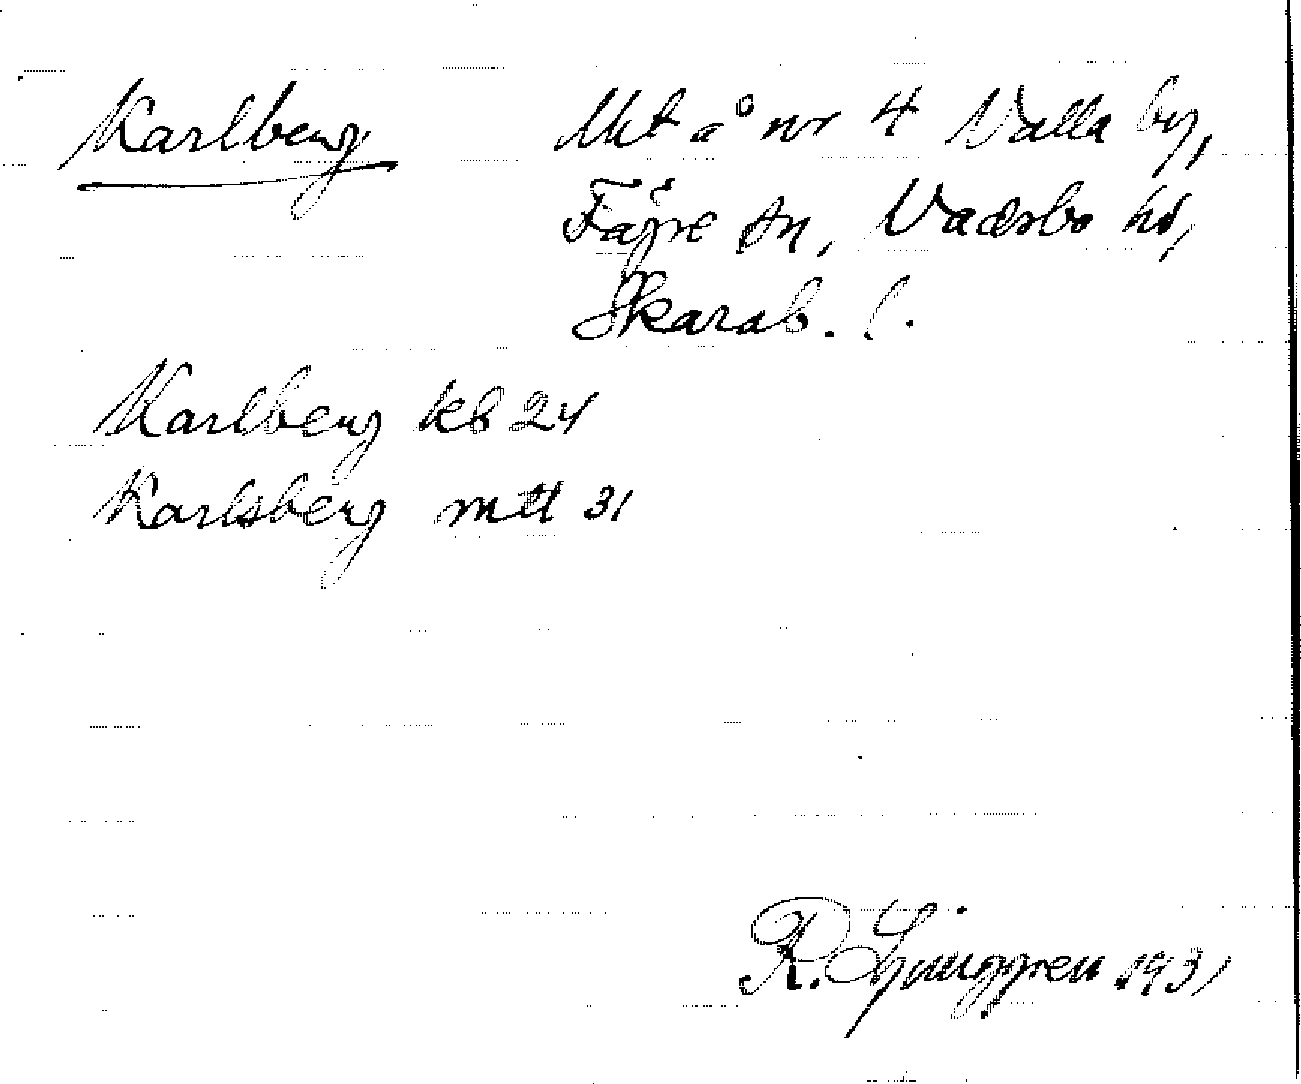 Karlberg Utt å nr 4 Valla by,
Fägre sn, Vadsbo hd,
Skarab. l.
Karlberg kb 24
Karlsberg mtl 31
R. Ljunggren 1931